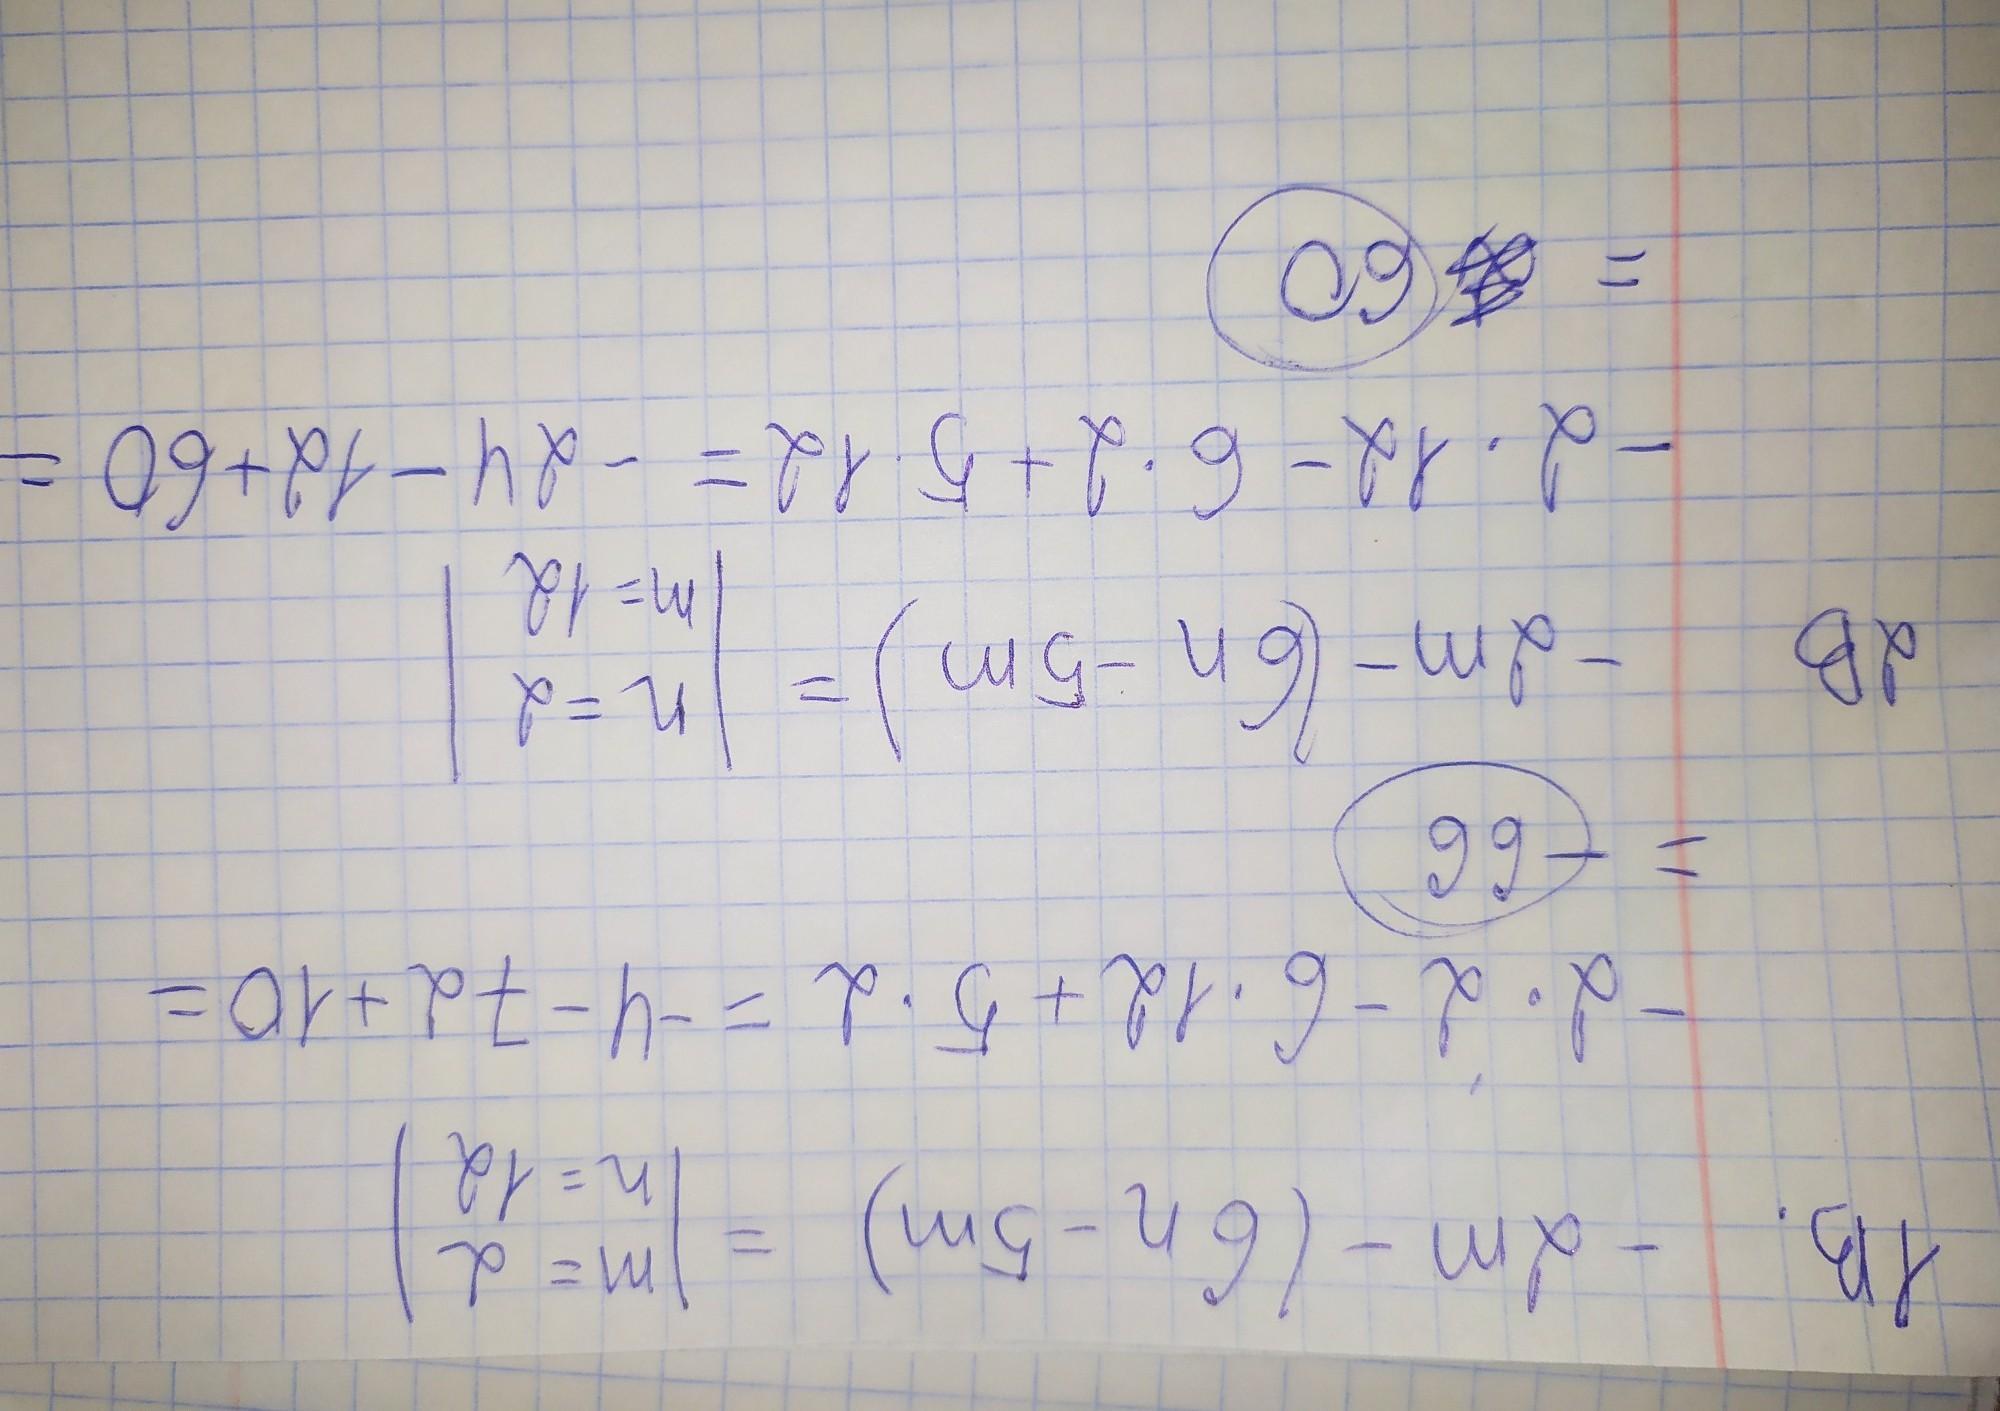 1В. - 2m - (6n - 5m) = | m = 2
n = 12 |
- 2 · 2 - 6 · 12 + 5 · 2 = -4 - 72 + 10 =
= -66
2В - 2m - (6n - 5m) = | n = 2
m = 12 |
- 2 · 12 - 6 · 2 + 5 · 12 = - 24 - 12 + 60 =
= 60